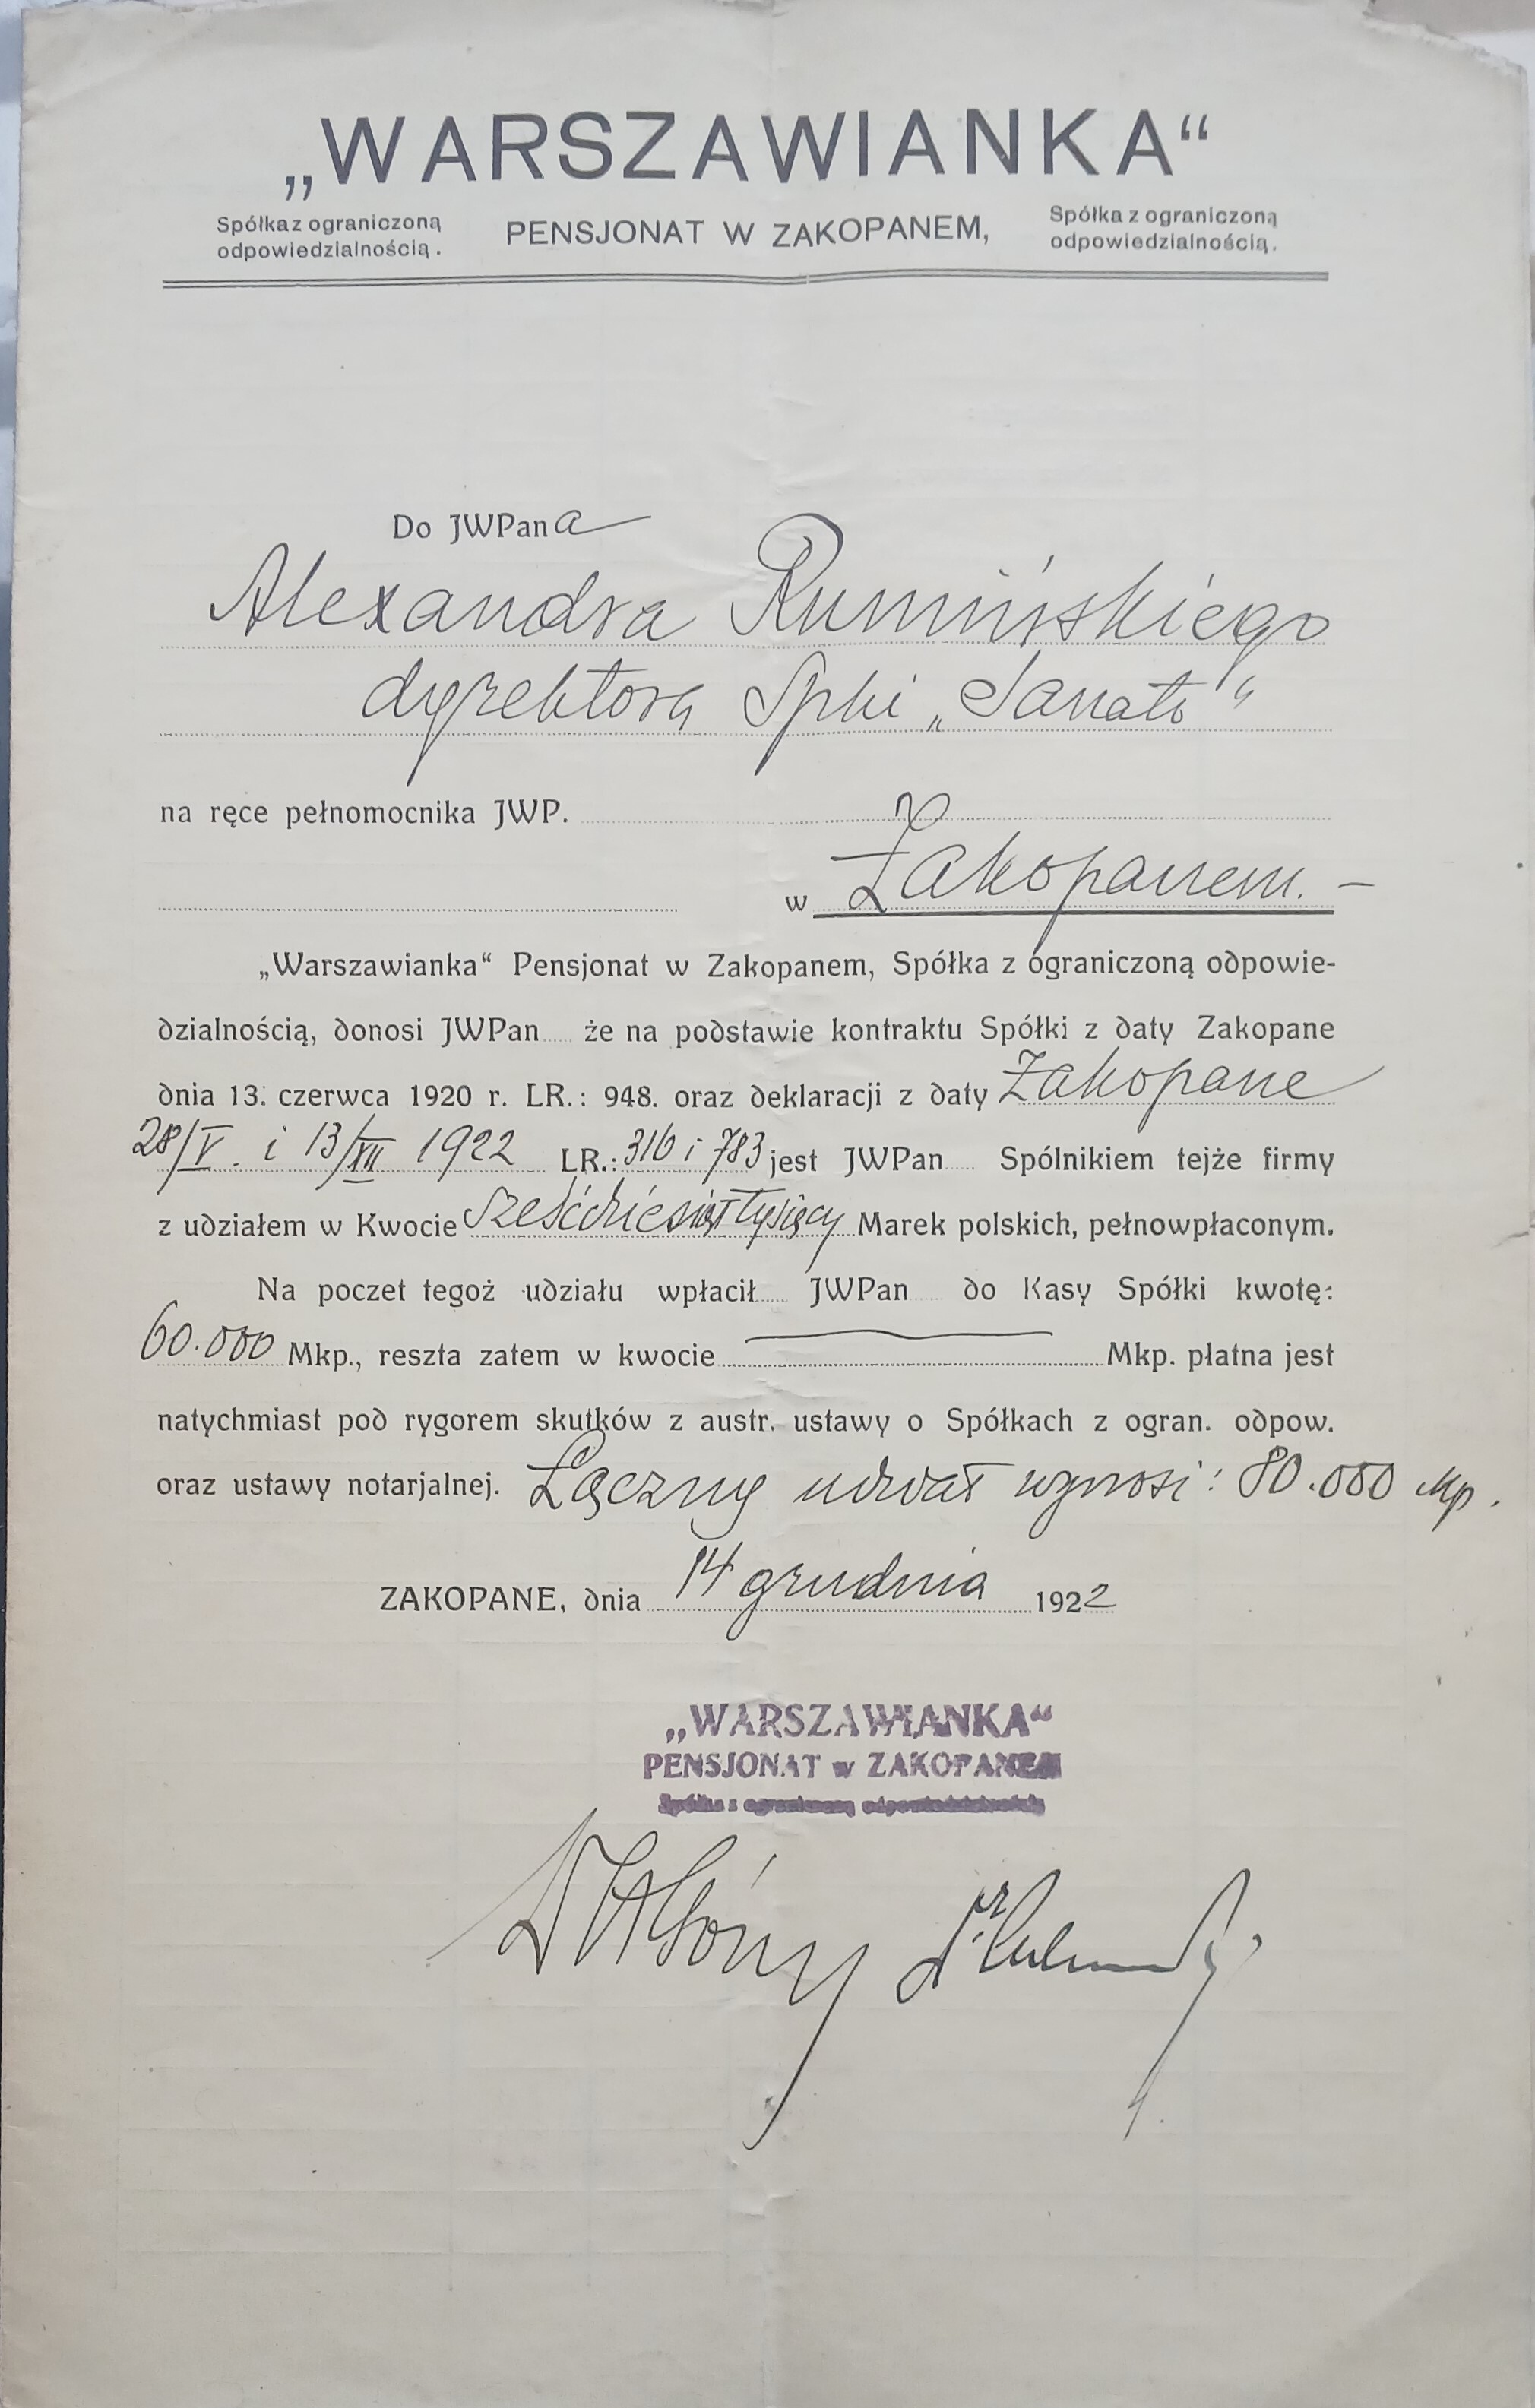 „WARSZAWIANKA“
Spółka z ograniczoną odpowiedzialnością. PENSJONAT W ZAKOPANEM, Spółka z ograniczoną odpowiedzialnością.
Do JWPana
Alexandra Rumińskiego
dyrektora Spki „Sanato“
na ręce pełnomocnika JWP.
w Zakopanem. —
„Warszawianka“ Pensjonat w Zakopanem, Spółka z ograniczoną odpowie-
dzialnością, donosi JWPan że na podstawie kontraktu Spółki z daty Zakopane
dnia 13. czerwca 1920 r. LR.: 948. oraz deklaracji z daty Zakopane
28/V. i 13/XII 1922 LR.: 316 i 783 jest JWPan Spólnikiem tejże firmy
z udziałem w Kwocie sześćdziesiąt tysięcy Marek polskich, pełnowpłaconym.
Na poczet tegoż udziału wpłacił JWPan do Kasy Spółki kwotę:
60.000 Mkp., reszta zatem w kwocie Mkp. płatna jest
natychmiast pod rygorem skutków z austr. ustawy o Spółkach z ogran. odpow.
oraz ustawy notarjalnej. Łączny udział wynosi: 80.000 Mp.
ZAKOPANE, dnia 14 grudnia 1922
„WARSZAWIANKA“
PENSJONAT w ZAKOPANEM
Spółka z ograniczoną odpowiedzialnością